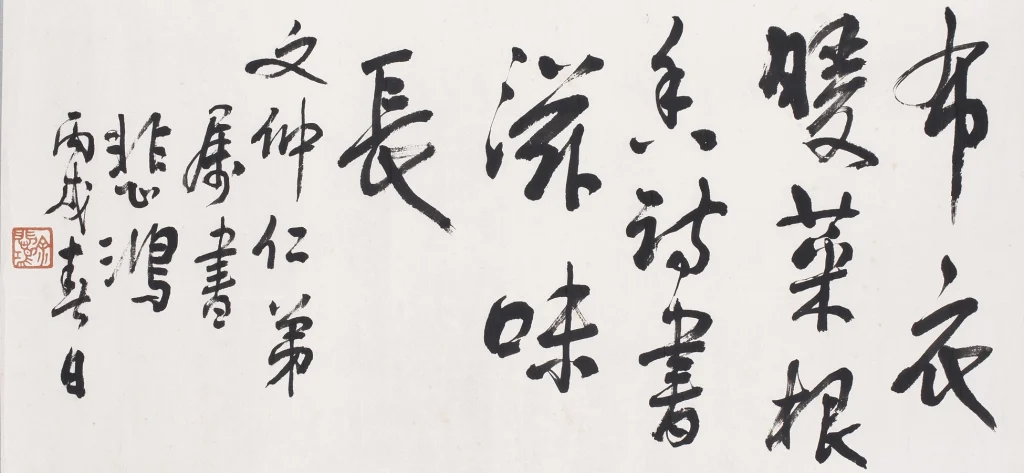 布衣
暖菜根
香詩書
滋味
長
文仲仁弟
属書
悲鴻
丙戌春日